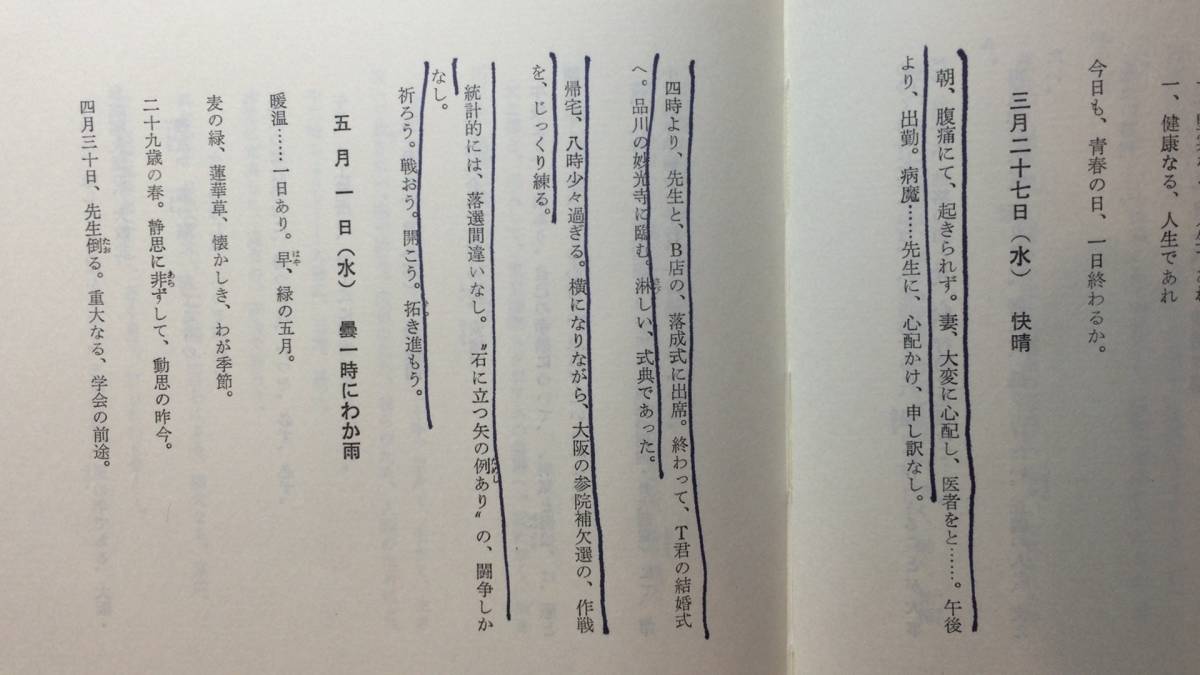 一、健康なる、人生であれ
今日も、青春の日、一日終わるか。
三月二十七日（水） 快晴
朝、腹痛にて、起きられず。妻、大変に心配し、医者をと……。午後
より、出勤。病魔……先生に、心配かけ、申し訳なし。
四時より、先生と、B店の、落成式に出席。終わって、T君の結婚式
へ。品川の妙光寺に臨む。淋しい、式典であった。
帰宅、八時少々過ぎる。横になりながら、大阪の参院補欠選の、作戦
を、じっくり練る。
統計的には、落選間違いなし。〝石に立つ矢の例あり〟の、闘争しか
なし。
祈ろう。戦おう。開こう。拓き進もう。
五月一日（水） 曇一時にわか雨
暖温……一日あり。早、緑の五月。
麦の緑、蓮華草、懐かしき、わが季節。
二十九歳の春。静思に非ずして、動思の昨今。
四月三十日、先生倒る。重大なる、学会の前途。